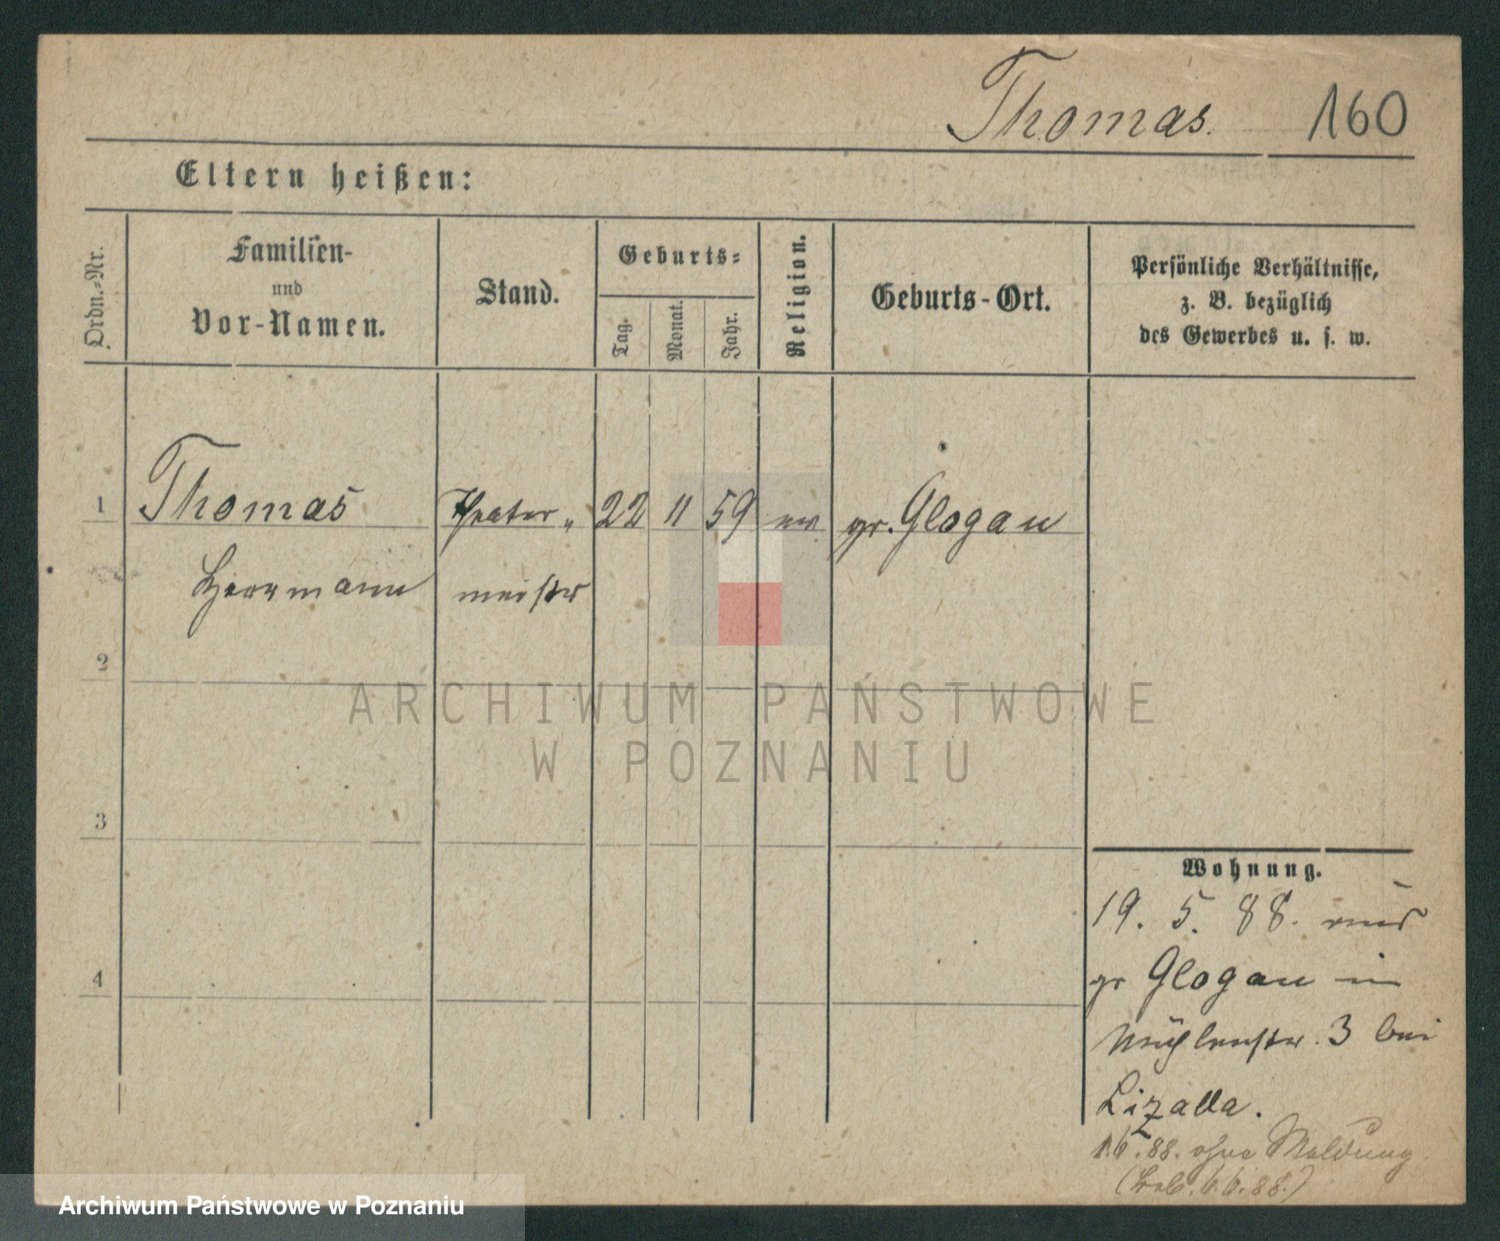 Thomas. 160
Eltern heißen:
Ordn.-Nr.
Familien-
und
Vor-Namen.
Stand.
Geburts-
Tag.
Monat.
Jahr.
Religion.
Geburts-Ort.
Persönliche Verhältnisse,
z. B. bezüglich
des Gewerbes u. s. w.
1 Thomas Theater- 22 11 59 ev gr. Glogau
Herrmann meister
2
3
4
Wohnung.
19. 5. 88. aus
gr Glogau in
Mühlenstr. 3 bei
Lizalla.
1.6.88. ohne Meldung
6.6.88.)
ARCHIWUM PAŃSTWOWE
W POZNANIU
Archiwum Państwowe w Poznaniu